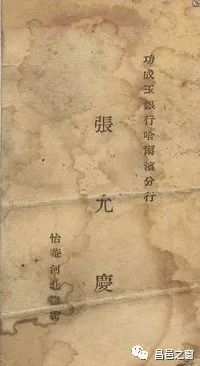 功成玉銀行哈爾濱分行
張允慶
怡菴河北
昌邑之窗